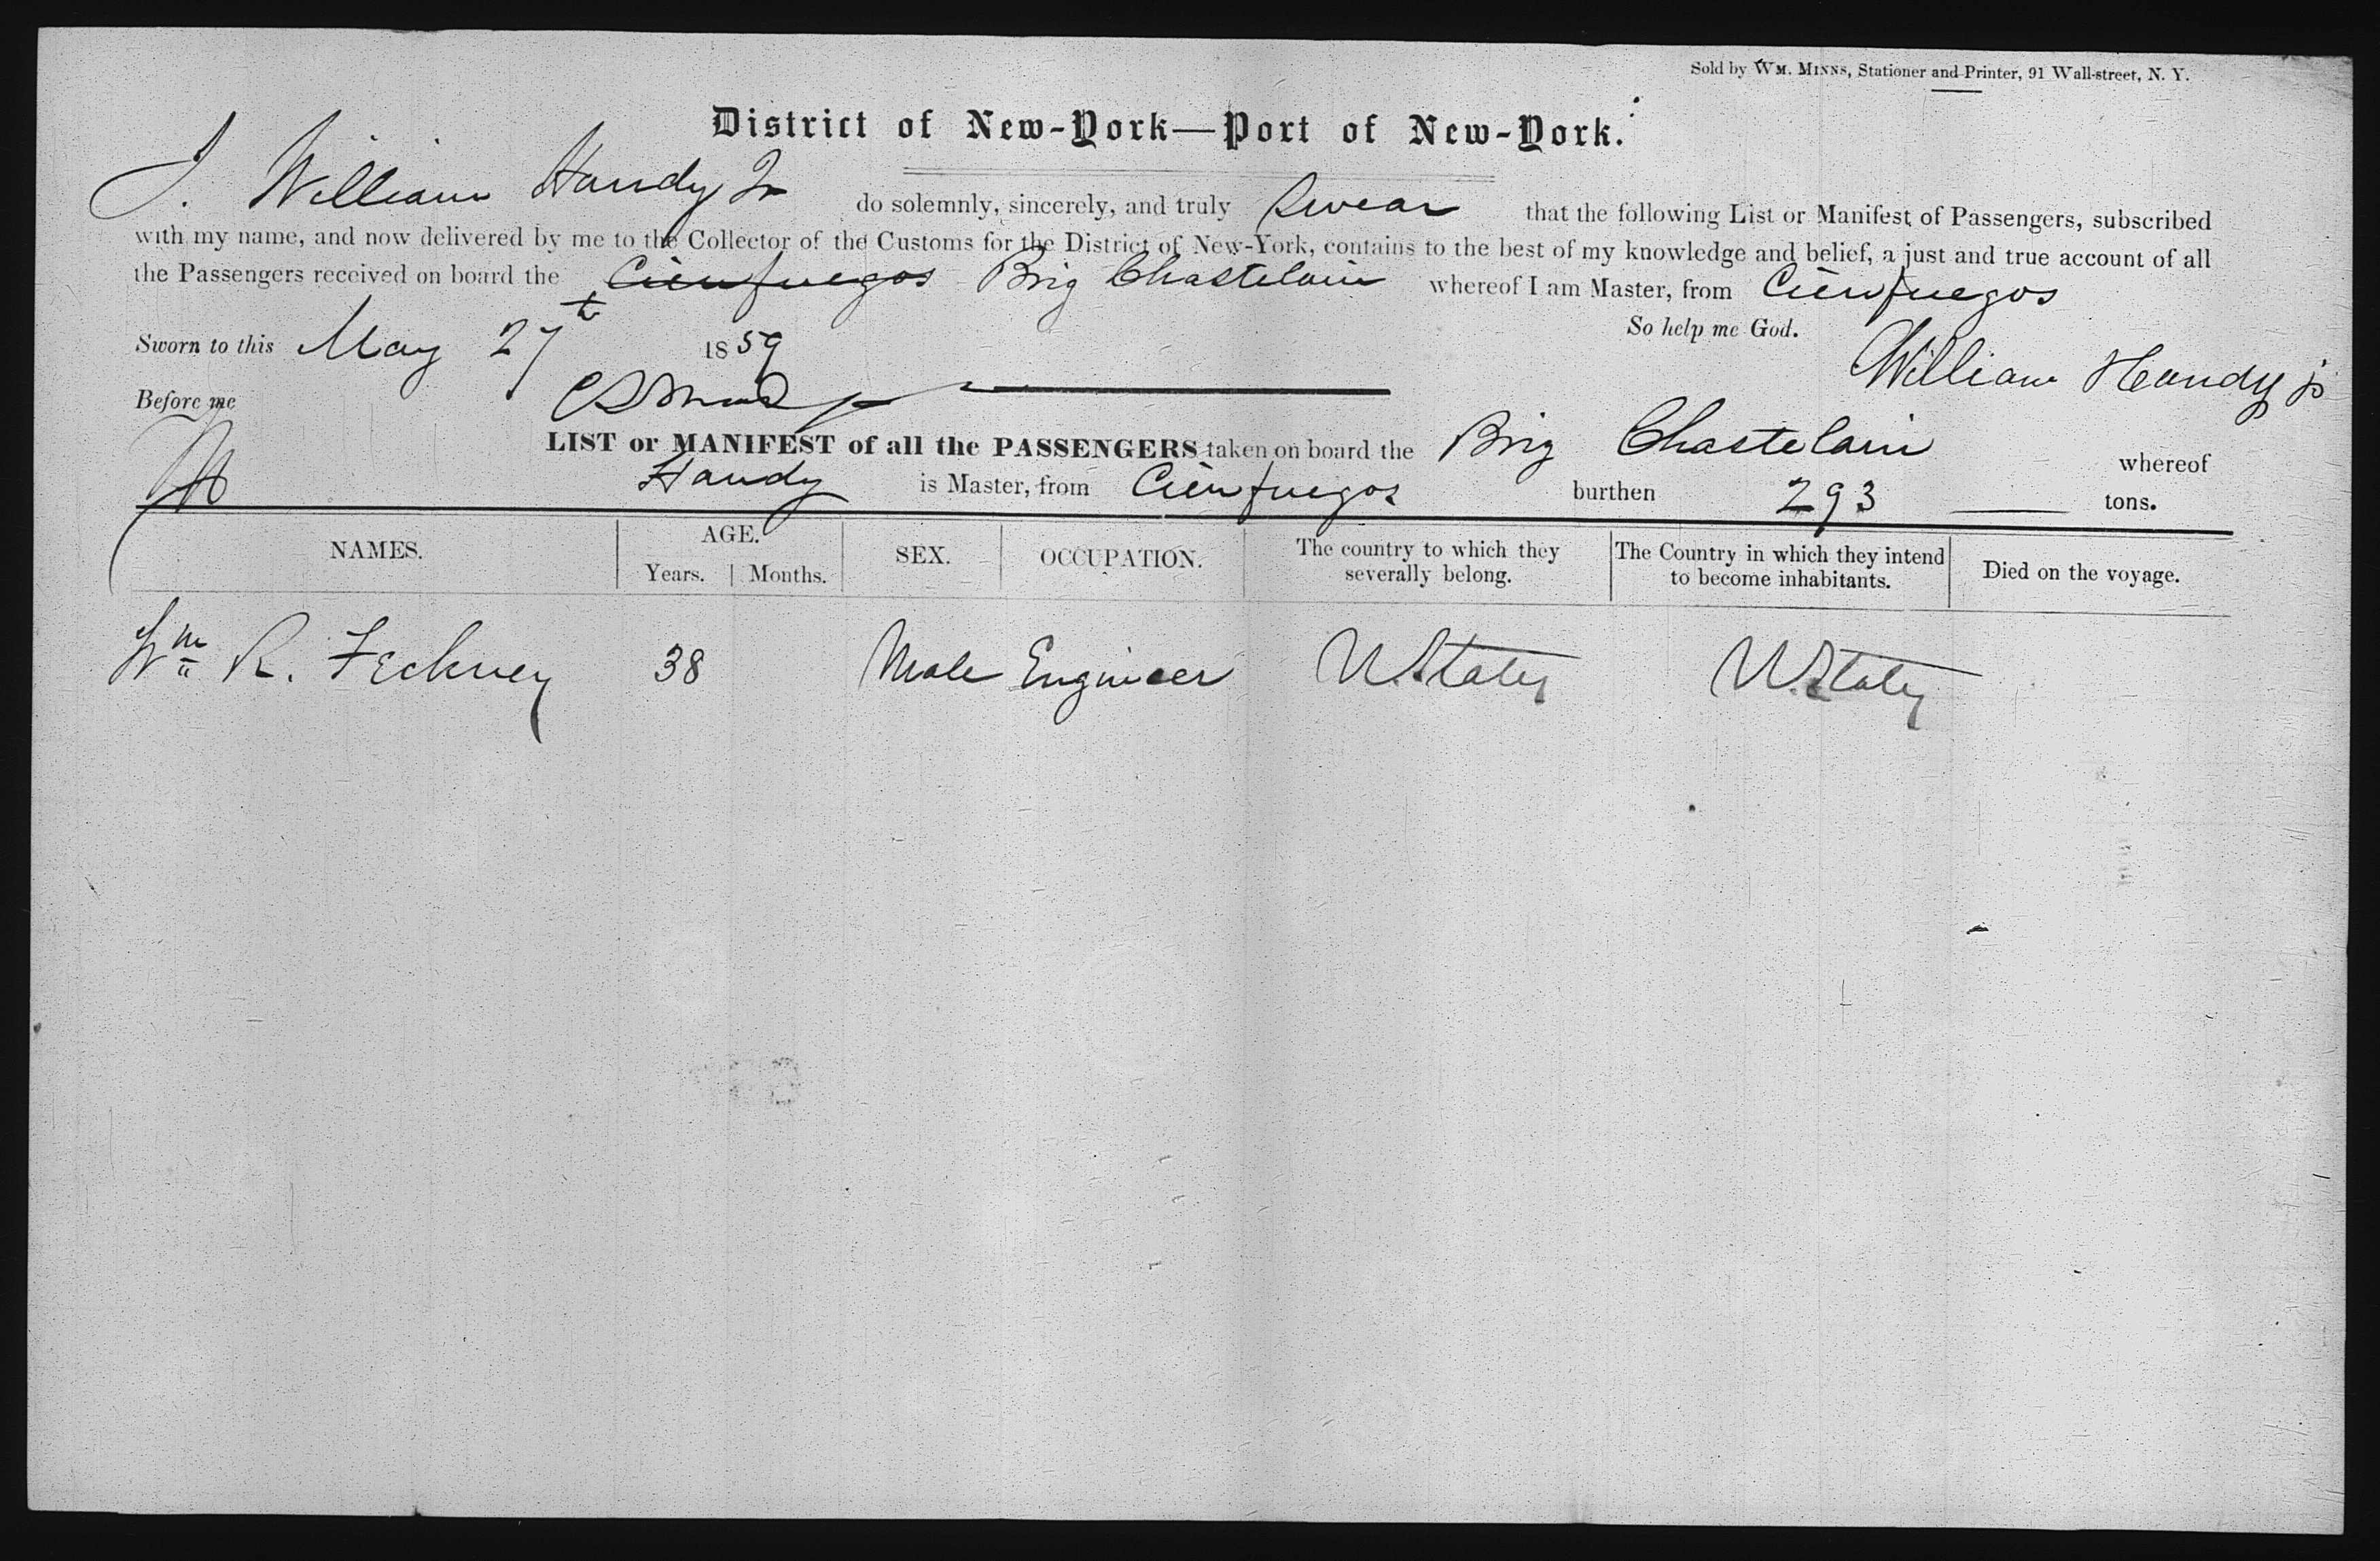 Sold by WM. MINNS, Stationer and Printer, 91 Wall-street, N. Y.
District of New-York—Port of New-York.
I. William Handy Jr do solemnly, sincerely, and truly Swear that the following List or Manifest of Passengers, subscribed
with my name, and now delivered by me to the Collector of the Customs for the District of New-York, contains to the best of my knowledge and belief, a just and true account of all
the Passengers received on board the Cienfuegos Brig Chastelain whereof I am Master, from Cienfuegos
So help me God.
Sworn to this May 27th 1859
William Handy jr
Before me
LIST or MANIFEST of all the PASSENGERS taken on board the Brig Chastelain whereof
Handy is Master, from Cienfuegos burthen 293 tons.
NAMES. AGE. Years. Months. SEX. OCCUPATION. The country to which they severally belong. The Country in which they intend to become inhabitants. Died on the voyage.
Wm R. Feckney 38 Male Engineer U.States U.States